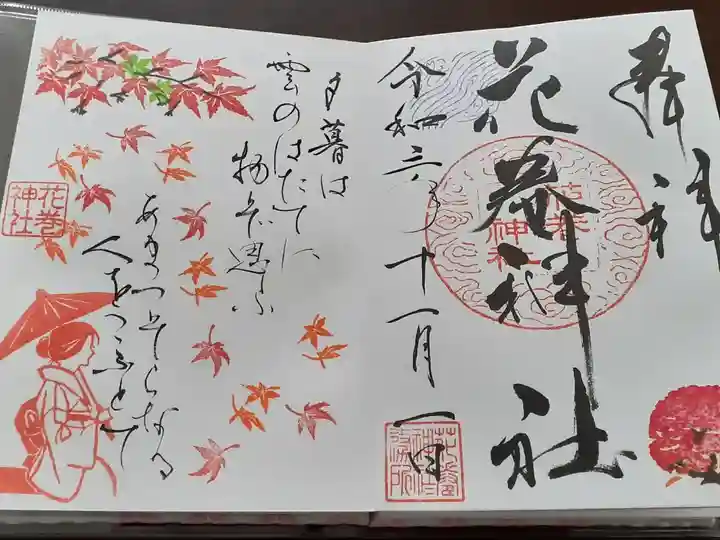 奉拝
花巻神社
花巻
神社
令和六年十一月一日
夕暮は
雲のはたてに
物そ思ふ
あまつそらなる
人をこふとて
花巻
神社